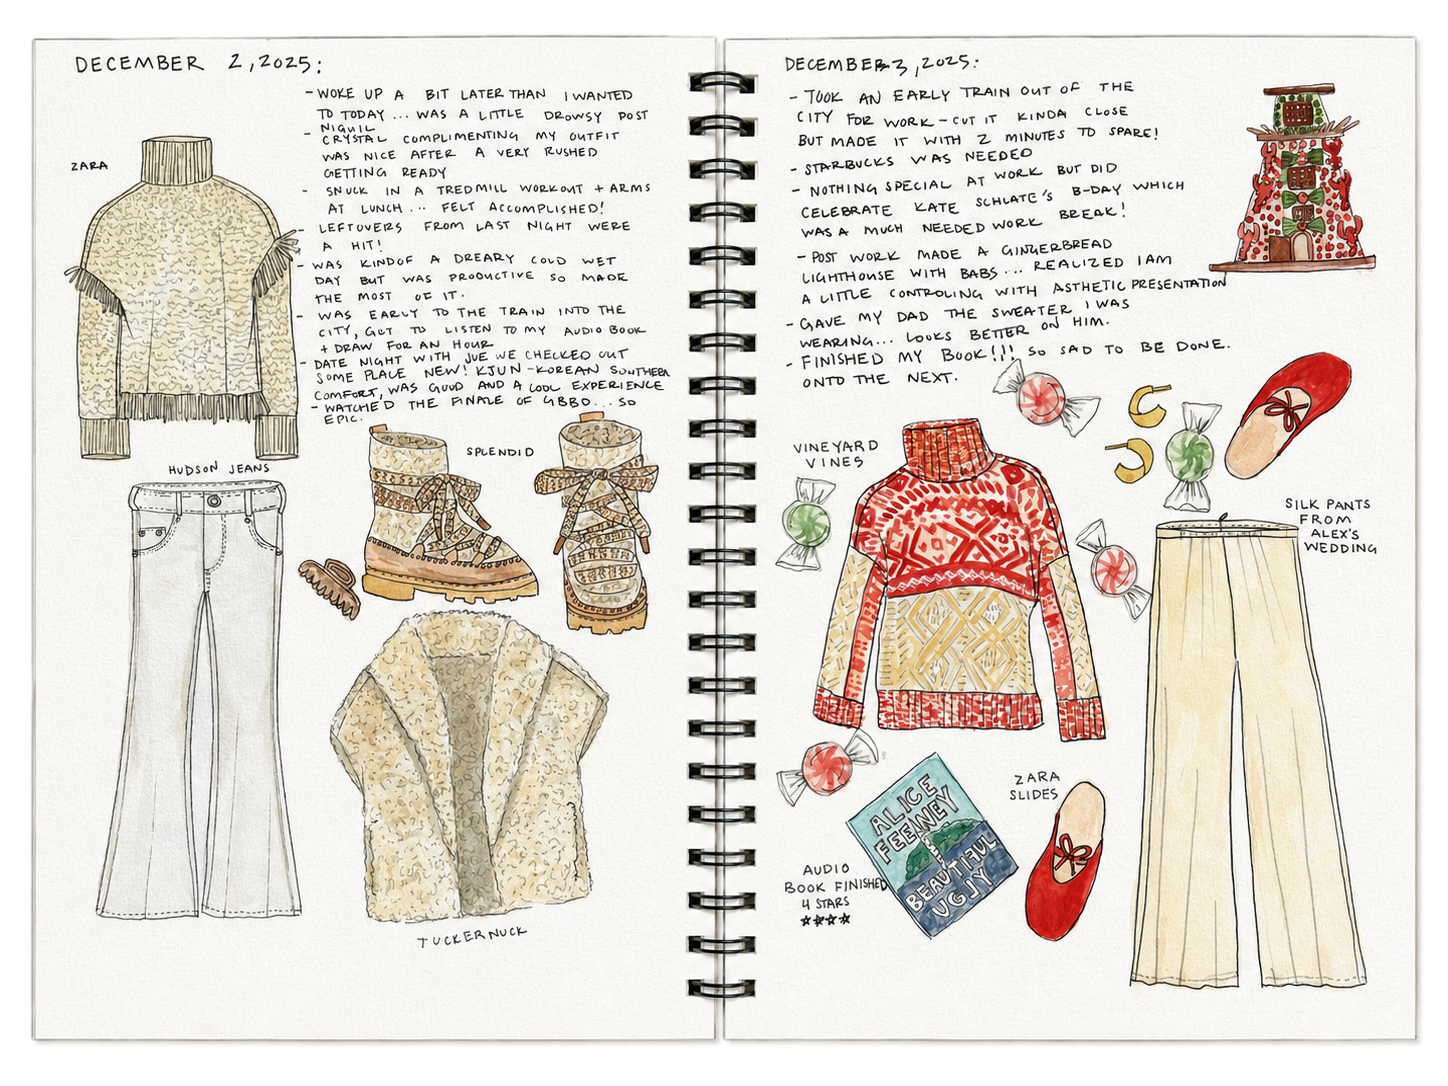 DECEMBER 2, 2025:
- WOKE UP A BIT LATER THAN I WANTED
TO TODAY ... WAS A LITTLE DROWSY POST
NIQUIL
- CRYSTAL COMPLIMENTING MY OUTFIT
WAS NICE AFTER A VERY RUSHED
GETTING READY
- SNUCK IN A TREDMILL WORKOUT + ARMS
AT LUNCH ... FELT ACCOMPLISHED!
- LEFTOVERS FROM LAST NIGHT WERE
A HIT!
- WAS KINDOF A DREARY COLD WET
DAY BUT WAS PRODUCTIVE SO MADE
THE MOST OF IT.
- WAS EARLY TO THE TRAIN INTO THE
CITY, GOT TO LISTEN TO MY AUDIO BOOK
+ DRAW FOR AN HOUR
- DATE NIGHT WITH JOE WE CHECKED OUT
SOME PLACE NEW! KJUN - KOREAN SOUTHERN
COMFORT, WAS GOOD AND A COOL EXPERIENCE
- WATCHED THE FINALE OF GBBO... SO
EPIC.
ZARA
HUDSON JEANS
SPLENDID
TUCKERNUCK
DECEMBER 3, 2025:
- TOOK AN EARLY TRAIN OUT OF THE
CITY FOR WORK - CUT IT KINDA CLOSE
BUT MADE IT WITH 2 MINUTES TO SPARE!
- STARBUCKS WAS NEEDED
- NOTHING SPECIAL AT WORK BUT DID
CELEBRATE KATE SCHLATE'S B-DAY WHICH
WAS A MUCH NEEDED WORK BREAK!
- POST WORK MADE A GINGERBREAD
LIGHTHOUSE WITH BABS ... REALIZED I AM
A LITTLE CONTROLING WITH ASTHETIC PRESENTATION
- GAVE MY DAD THE SWEATER I WAS
WEARING... LOOKS BETTER ON HIM.
- FINISHED MY BOOK!!! SO SAD TO BE DONE.
ONTO THE NEXT.
VINEYARD
VINES
SILK PANTS
FROM
ALEX'S
WEDDING
ZARA
SLIDES
AUDIO
BOOK FINISHED
4 STARS
★★★★
ALICE
FEENEY
BEAUTIFUL
UGLY